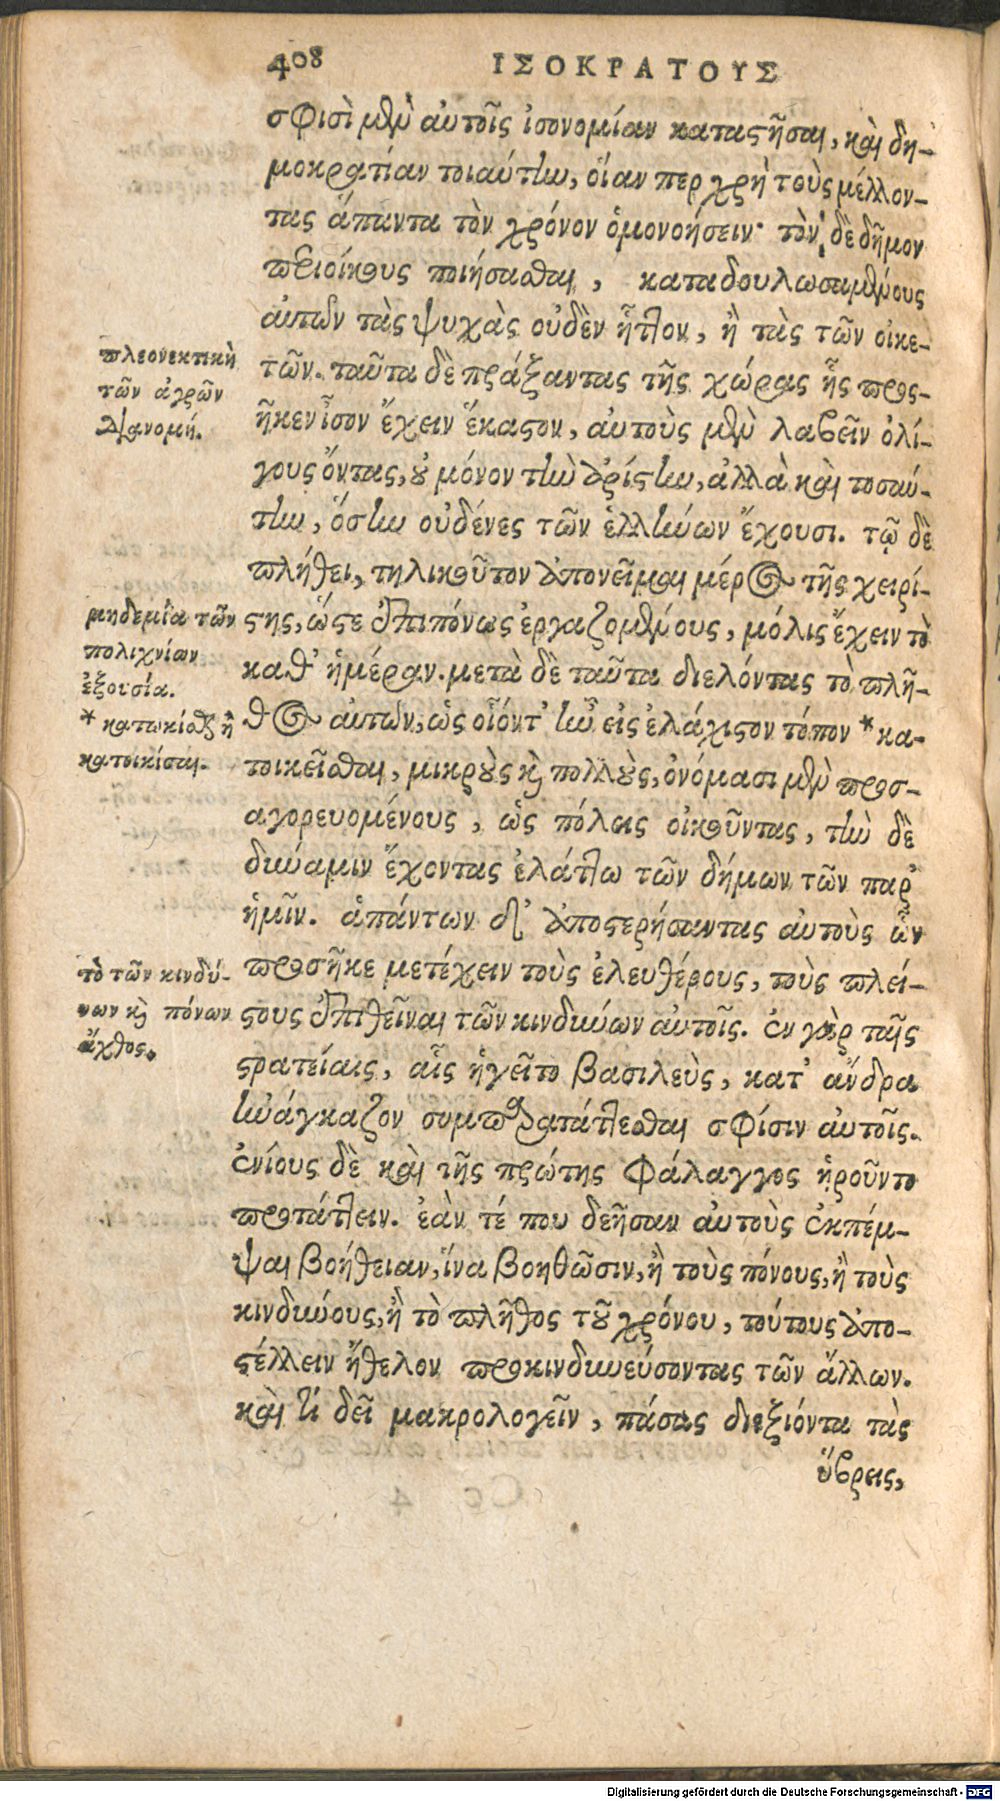 408 ΙΣΟΚΡΑΤΟΥΣ
σφισὶ μὲν αὐτοῖς ἰσονομίαν καταστῆσαι, καὶ δη-
μοκρατίαν τοιαύτην, οἵαν περ χρὴ τοὺς μέλλον-
τας ἅπαντα τὸν χρόνον ὁμονοήσειν· τὸν δὲ δῆμον
περιοίκους ποιήσασθαι, καταδουλωσαμένους
αὐτῶν τὰς ψυχὰς οὐδὲν ἧττον, ἢ τὰς τῶν οἰκε-
τῶν. ταῦτα δὲ πράξαντας τῆς χώρας ἧς προς-
ῆκεν ἶσον ἔχειν ἕκαστον, αὐτοὺς μὲν λαβεῖν ὀλί-
γους ὄντας, οὐ μόνον τὴν ἀρίστην, ἀλλὰ καὶ τοσαύ-
την, ὅσην οὐδένες τῶν ἑλλήνων ἔχουσι. τῷ δὲ
πλήθει, τηλικοῦτον ἀπονεῖμαι μέρος τῆς χειρί-
στης, ὥστε ἐπιπόνως ἐργαζομένους, μόλις ἔχειν τὸ
καθ' ἡμέραν. μετὰ δὲ ταῦτα διελόντας τὸ πλῆ-
θος αὐτῶν, ὡς οἷόντ' ἦν εἰς ἐλάχιστον τόπον * κα-
τοικεῖσθαι, μικροὺς καὶ πολλοὺς, ὀνόμασι μὲν προσ-
αγορευομένους, ὡς πόλεις οἰκοῦντας, τὴν δὲ
δύναμιν ἔχοντας ἐλάττω τῶν δήμων τῶν παρ'
ἡμῖν. ἁπάντων δ' ἀποστερήσαντας αὐτοὺς ὧν
προσῆκε μετέχειν τοὺς ἐλευθέρους, τοὺς πλεί-
στους ἐπιθεῖναι τῶν κινδύνων αὐτοῖς. ἐν γὰρ ταῖς
στρατείαις, αἷς ἡγεῖτο βασιλεὺς, κατ' ἄνδρα
ἠνάγκαζον συμπαρατάττεσθαι σφίσιν αὐτοῖς.
ἐνίους δὲ καὶ τῆς πρώτης φάλαγγος ᾑροῦντο
προτάττειν. ἐάν τέ που δεῆσαν αὐτοὺς ἐκπέμ-
ψαι βοήθειαν, ἵνα βοηθῶσιν, ἢ τοὺς πόνους, ἢ τοὺς
κινδύνους, ἢ τὸ πλῆθος τοῦ χρόνου, τούτους ἀπο-
στέλλειν ἤθελον προκινδυνεύσοντας τῶν ἄλλων.
καὶ τί δεῖ μακρολογεῖν, πάσας διεξιόντα τὰς
ὕβρεις,
πλεονεκτικὴ
τῶν ἀγρῶν
διανομή.
μηδεμία τῶν
πολιχνίων
ἐξουσία.
* κατῳκίσθαι ἢ
κατοικίσαι.
τὸ τῶν κινδύ-
νων καὶ πόνων
ἄχθος.
Digitalisierung gefördert durch die Deutsche Forschungsgemeinschaft - DFG